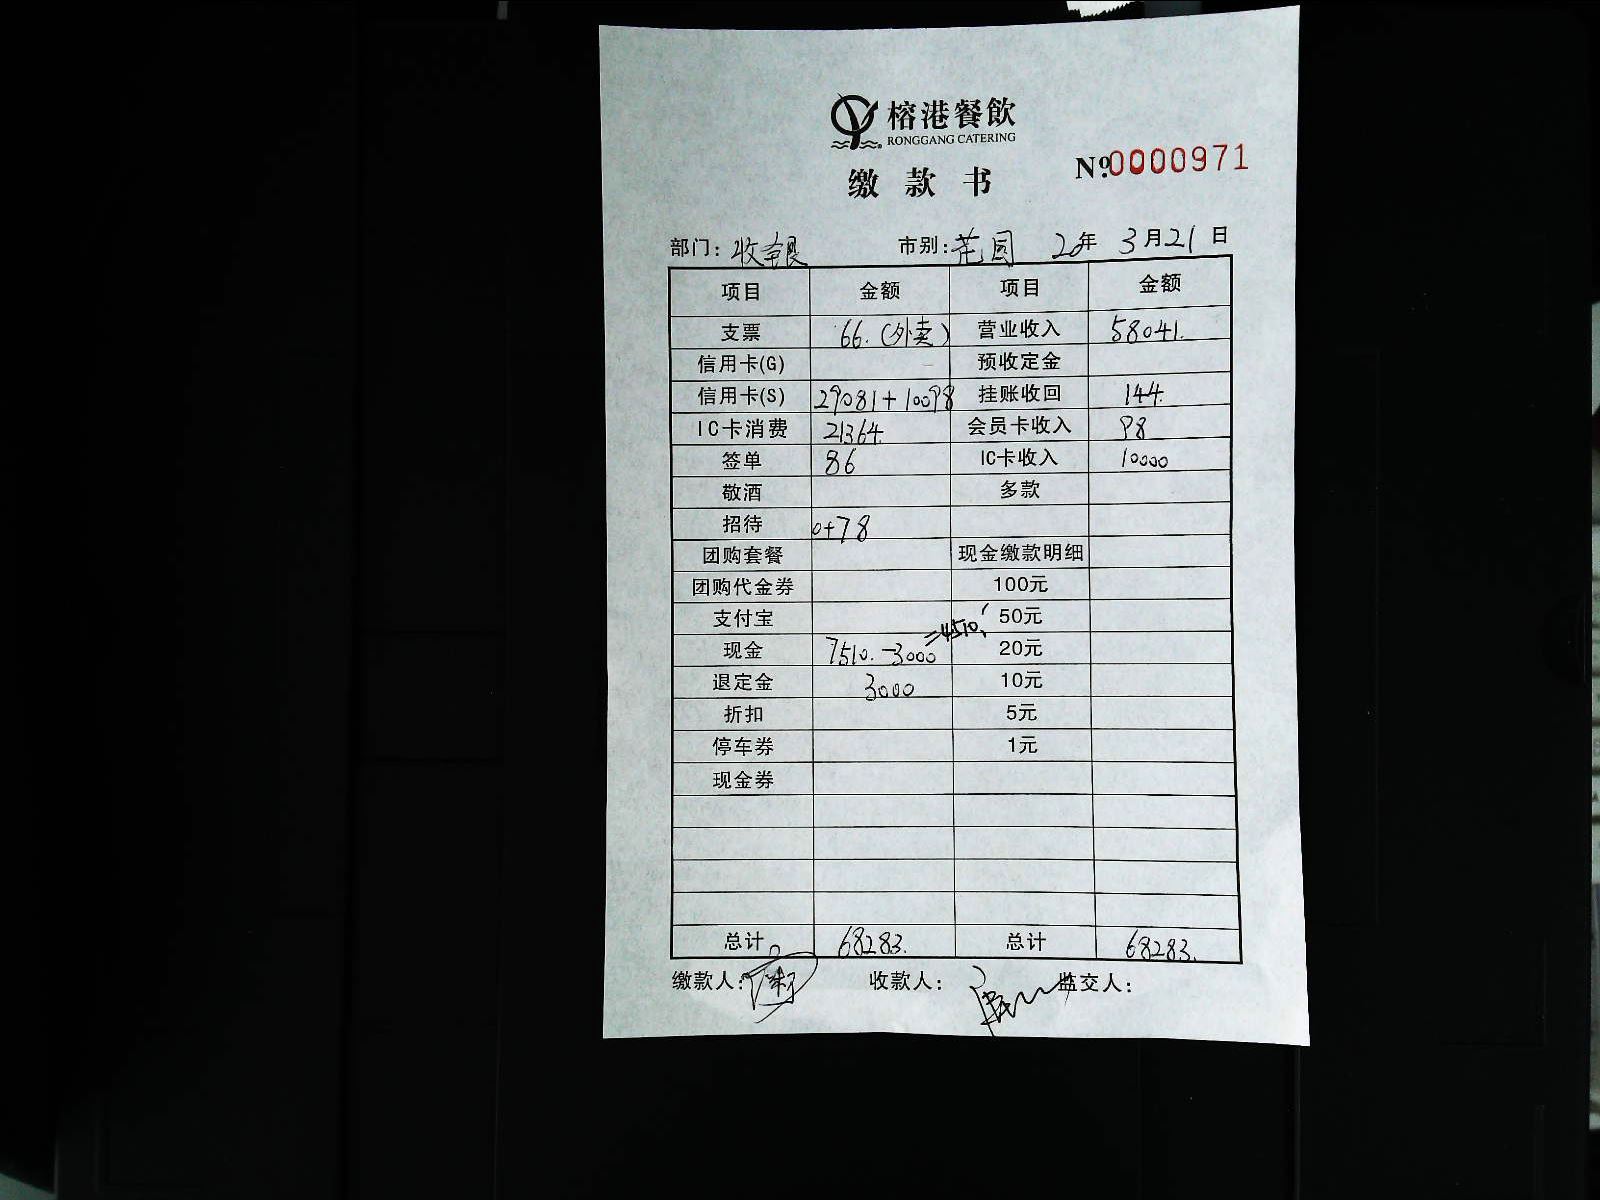 榕港餐飲
RONGGANG CATERING
缴款书
№0000971
部门: 收银 市别: 花园 20年 3月21日
项目 金额 项目 金额
支票 66.(外卖) 营业收入 58041.
信用卡(G) 预收定金
信用卡(S) 29081+10098 挂账收回 144.
IC卡消费 21364. 会员卡收入 98
签单 86 IC卡收入 10000
敬酒 多款
招待 0+78
团购套餐 现金缴款明细
团购代金券 100元
支付宝 50元
现金 7510.-3000=4510. 20元
退定金 3000 10元
折扣 5元
停车券 1元
现金券
总计 68283. 总计 68283.
缴款人: 收款人: 监交人: